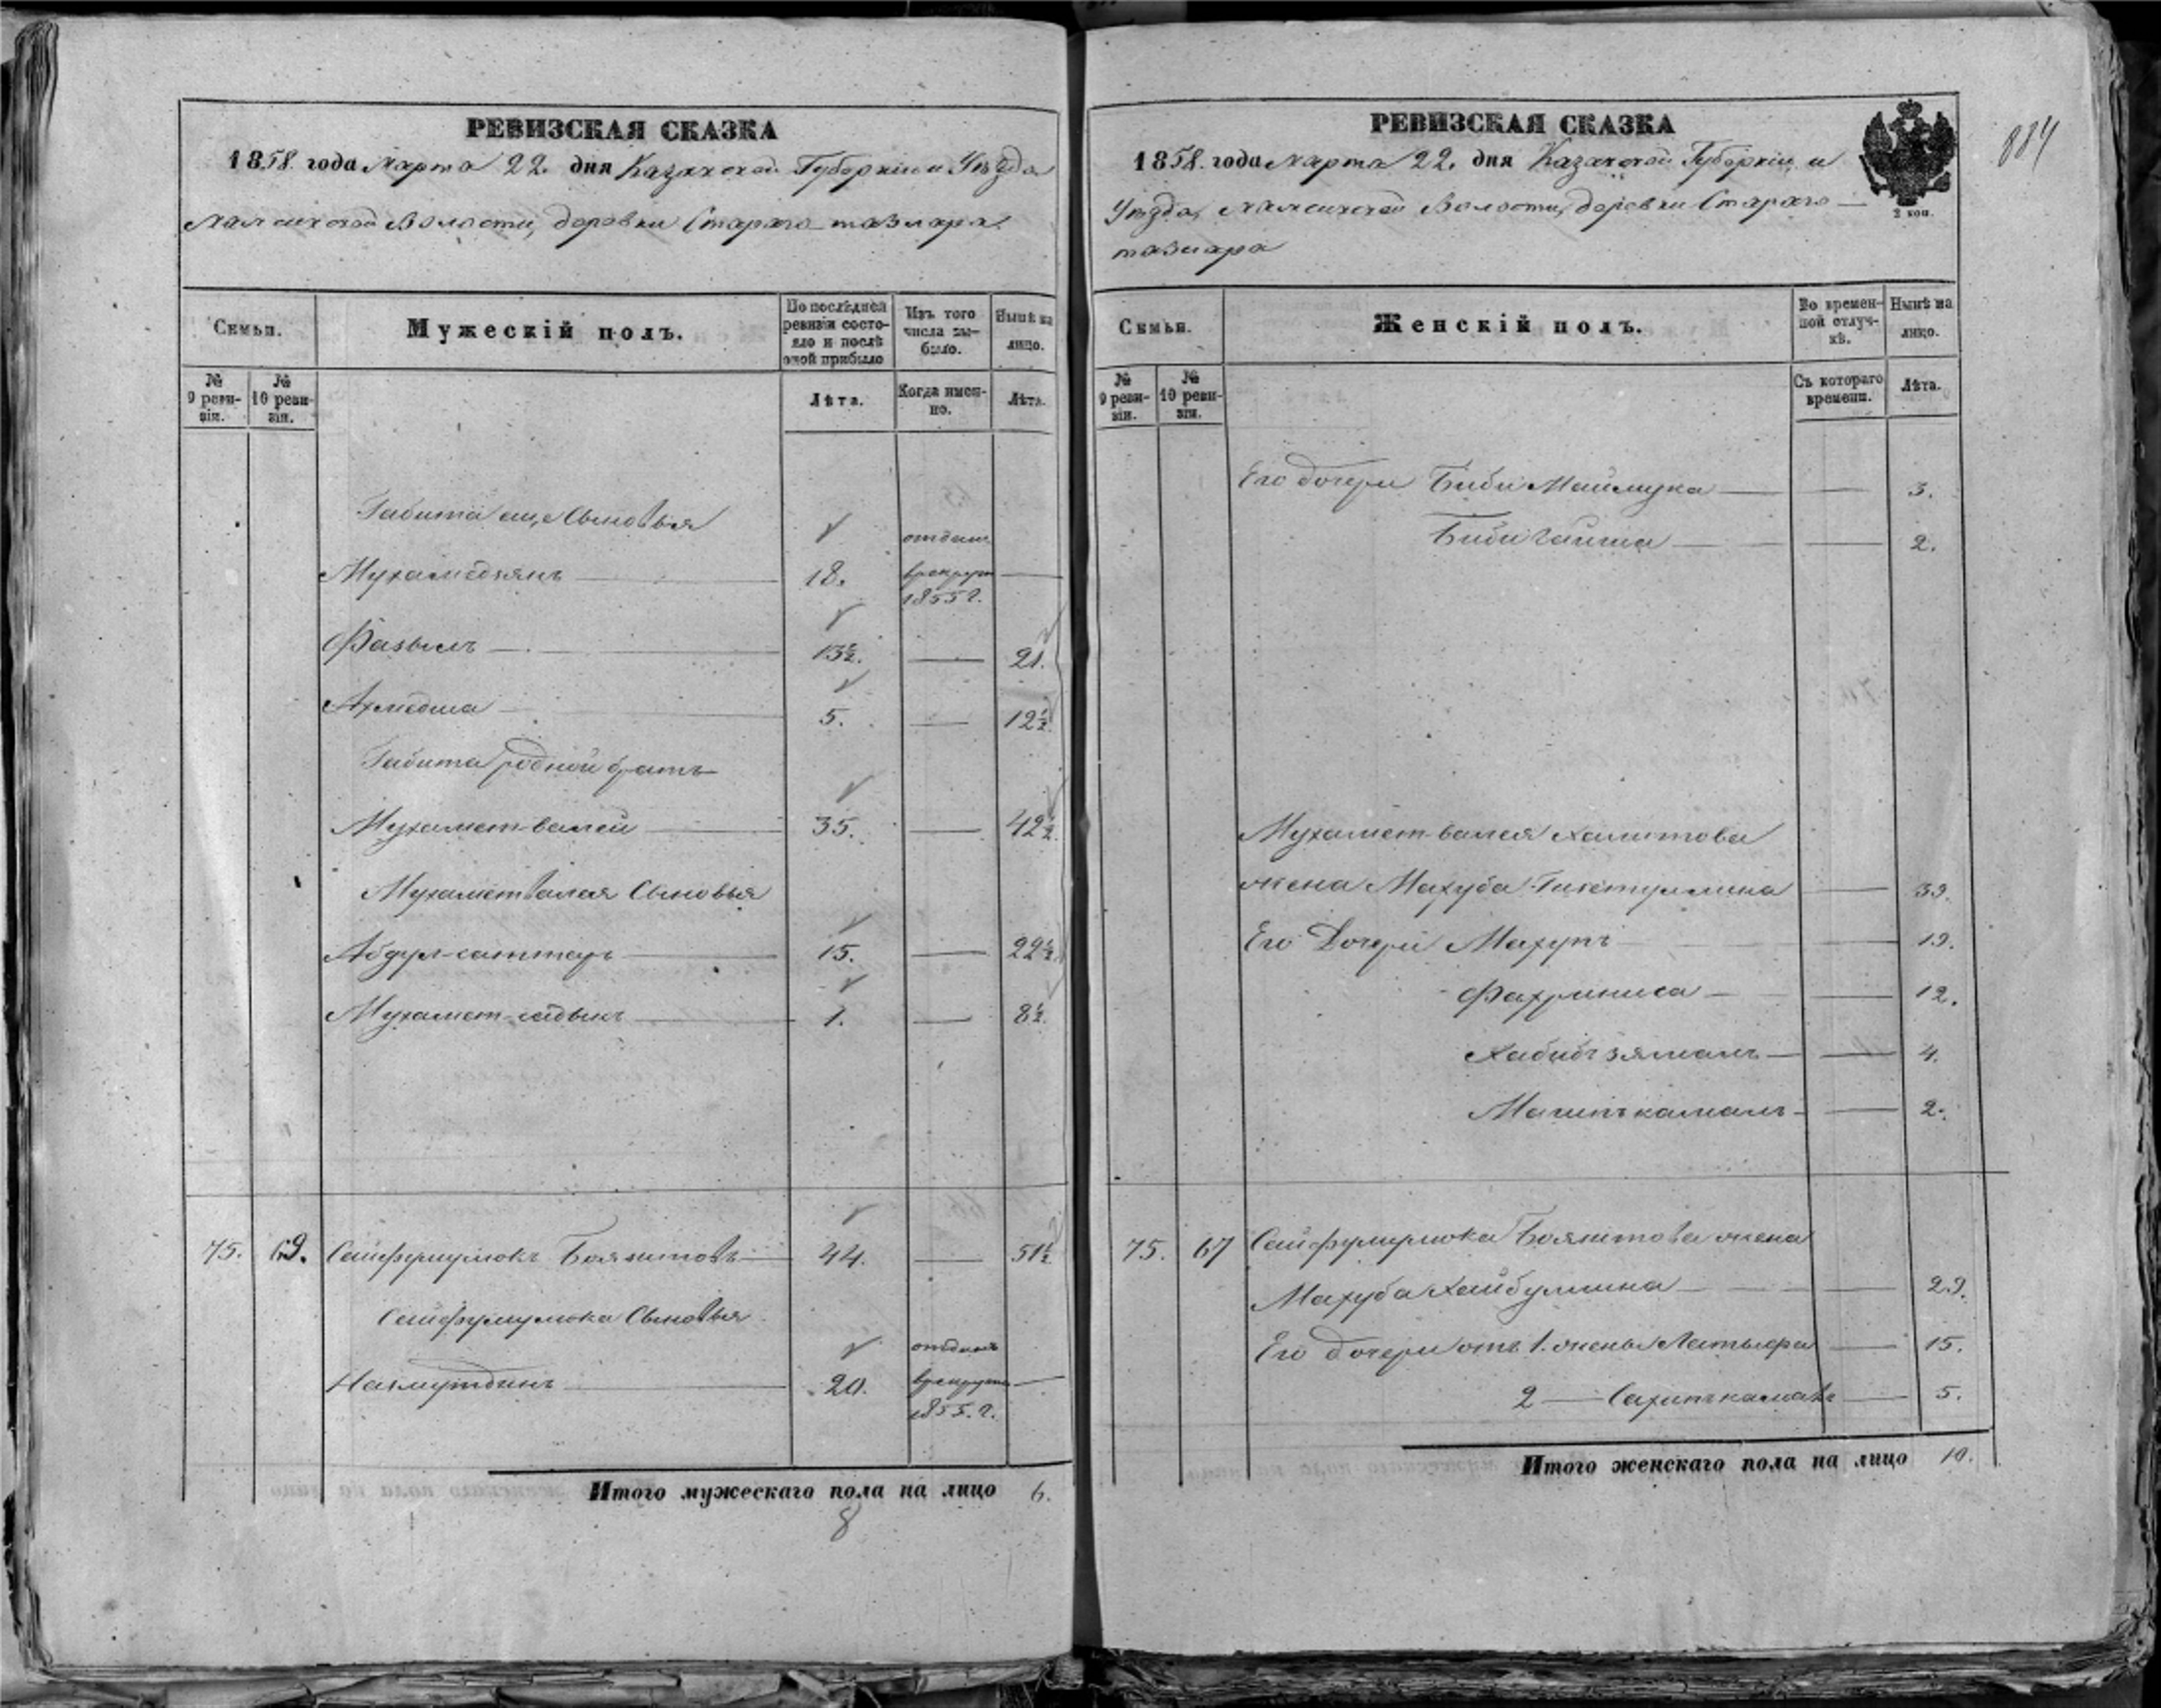 РЕВИЗСКАЯ СКАЗКА
1858. года Марта 22. дня Казанской Губерніи и Уѣзда
Мамсинской Волости, деревни Стараго
Семьи.
Мужескій полъ.
По послѣдней ревизіи состояло и послѣ оной прибыло
Изъ того числа выбыло.
Нынѣ на лицо.
№ 9 ревизіи.
№ 10 ревизіи.
Лѣта.
Когда именно.
Лѣта.
Габита еще Сыновья
Мухамедзянъ 18. отданъ в рекруты 1855 г.
Фазылъ 13½. 21.
Ахмедша 5. 12½.
Габита родной братъ
Мухамет-валей 35. 42½.
Мухаметвалея Сыновья
Абдул-саттаръ 15. 22½
Мухамет-садыкъ 1. 8½.
75. 69. Сайфулмулюкъ Боязитовъ 44. 51½.
Сайфулмулюка Сыновья
20. отданъ в рекруты 1855. г.
Итого мужескаго пола на лицо 6.
8
РЕВИЗСКАЯ СКАЗКА
884
1858. года Марта 22. дня Казанской Губерніи и
Уѣзда, Мамсинской Волости, деревни Стараго
2 коп.
Семьи.
Женскій полъ.
Во временной отлучкѣ.
Нынѣ на лицо.
№ 9 ревизіи.
№ 10 ревизіи.
Съ котораго времени.
Лѣта.
Его дочери Биби Маймука 3.
Биби Гайша 2.
Мухамет-валея Халитова
жена Махуба 39.
Его Дочери Махупъ 19.
Фахриниса 12.
Хабибъзямалъ 4.
Магипъкамалъ 2.
75. 67 Сайфулмулюка Боязитова жена
Махуба Хайбулина 29.
Его дочери отъ 1. жены Латыфа 15.
2 Сахипъкамалъ 5.
Итого женскаго пола на лицо 10.